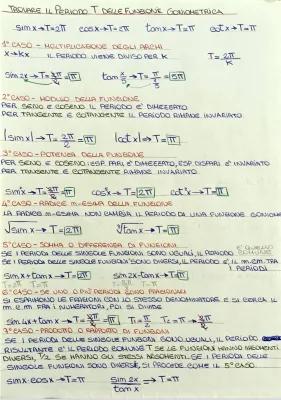 TROVARE IL PERIODO T DELLE FUNZIONE GONIOMETRICA
sinx→T=2π cosx→T=2π tanx→T=π cotx→T=π
1° CASO - MOLTIPLICAZIONE DEGLI ARCHI
x→kx IL PERIODO VIENE DIVISO PER K T=2π/K
sin2x→T=2π/2=π tan x/5→T=π/(1/5)=5π
2° CASO - MODULO DELLA FUNZIONE
PER SENO E COSENO IL PERIODO E' DIMEZZATO
PER TANGENTE E COTANGENTE IL PERIODO RIMANE INVARIATO
|sinx|→T=2π/2=π |cotx|→T=π
3° CASO - POTENZA DELLA FUNZIONE
PER SENO E COSENO: ESP. PARI E' DIMEZZATO, ESP. DISPARI E' INVARIATO
PER TANGENTE E COTANGENTE RIMANE INVARIATO
4° CASO - RADICE M-ESIMA DELLA FUNZIONE
LA RADICE M-ESIMA NON CAMBIA IL PERIODO DI UNA FUNZIONE
√sinx→T=2π →T=π
5° CASO - SOMMA O DIFFERENZA DI FUNZIONI
SE I PERIODI DELLE SINGOLE FUNZIONI SONO UGUALI, IL PERIODO E' QUELLO COMUNE
SE I PERIODI DELLE SINGOLE FUNZIONI SONO DIVERSI, IL PERIODO E' IL m.c.m. TRA I PERIODI
sinx+tanx→T=2π sin2x+tanx→T=π
6° CASO - SE UNO O PIU' PERIODI SONO FRAZIONARI
SI ESPRIMONO LE FRAZIONI CON LO STESSO DENOMINATORE E SI CERCA IL
m.c.m. FRA I NUMERATORI, POI SI DIVIDE
sin4x+tanx→T=
7° CASO - PRODOTTO O RAPPORTO DI FUNZIONI
SE I PERIODI DELLE SINGOLE FUNZIONI SONO UGUALI, IL PERIODO
RISULTANTE E' IL PERIODO COMUNE T SE LE FUNZIONI HANNO ARGOMENTI
DIVERSI, T/2 SE HANNO GLI STESSI ARGOMENTI. SE I PERIODI DELLE
SINGOLE FUNZIONI SONO DIVERSI, SI PROCEDE COME IL 5° CASO.
sinx·cosx→T=π sin2x/tanx→T=π